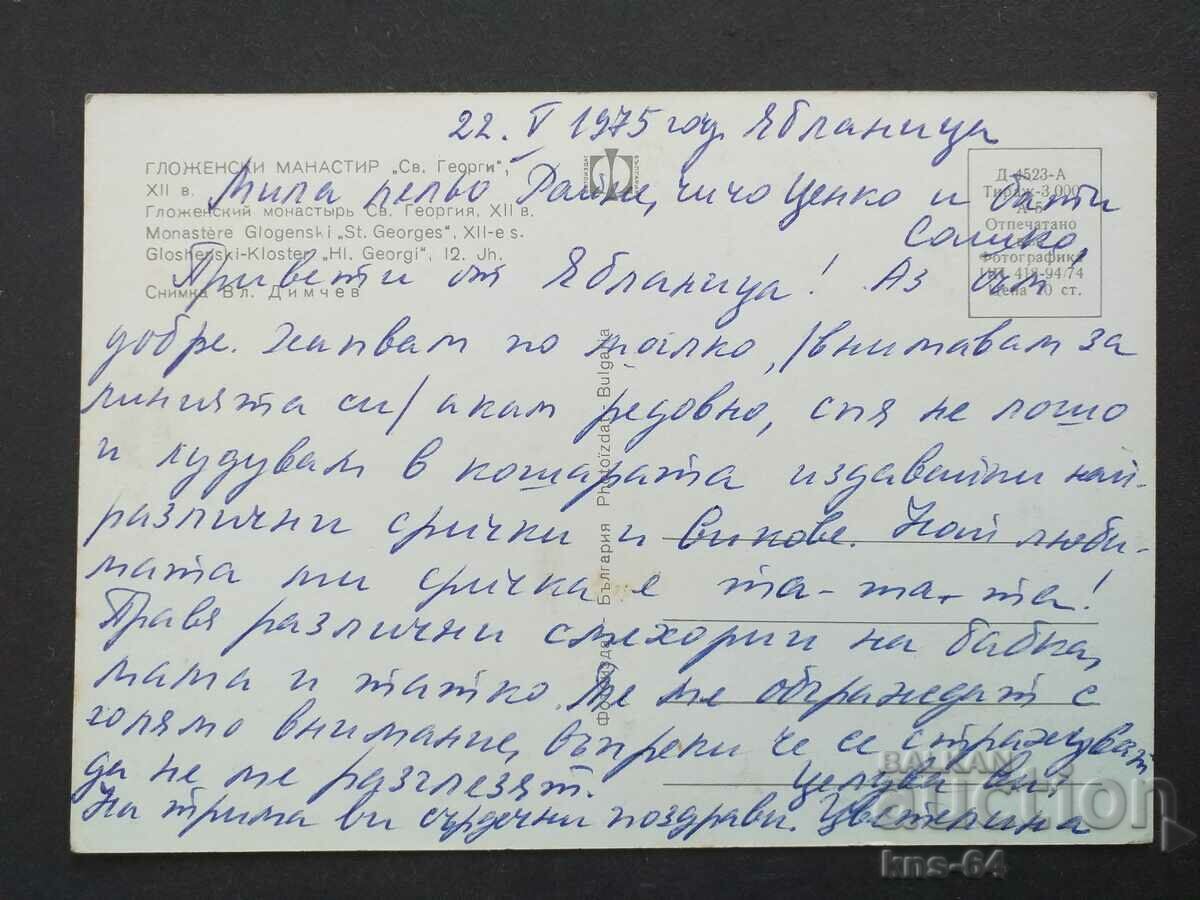 22. V 1975 год. Ябланица
ГЛОЖЕНСКИ МАНАСТИР „Св. Георги“,
XII в.
Гложенский монастырь Св. Георгия, XII в.
Monastère Glogenski „St. Georges“, XII-e s.
Gloshenski-Kloster „Hl. Georgi“, 12. Jh.
Снимка Вл. Димчев
Д 4523-А
Тираж-3,000
Отпечатано
Фотографика
418-94/74
Цена 10 ст.
Мила лельо чичо Ценко и бати
Солико,
Привети от Ябланица! Аз съм
добре. Хапвам по малко, /внимавам за
линията си/ акам редовно, спя не лошо
и лудувам в кошарата издавайки най-
различни срички и викове. Най люби-
мата ми сричка е та-та-та!
Правя различни смехории на бабка,
мама и татко. Те ме обграждат с
голямо внимание, въпреки че се стражуват
да не ме разглезят. Целува ви:
На трима ви сърдечни поздрави. Цветелина
Фотоиздат — България Photoïzdat Bulgaria
BALKAN
auction
kns-64